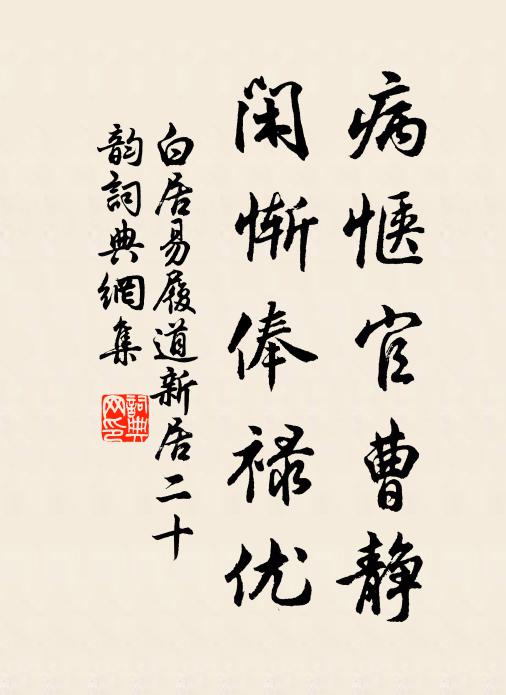 病惬官曹静
闲惭俸禄优
白居易履道新居二十
韵词典網集
詞典网印